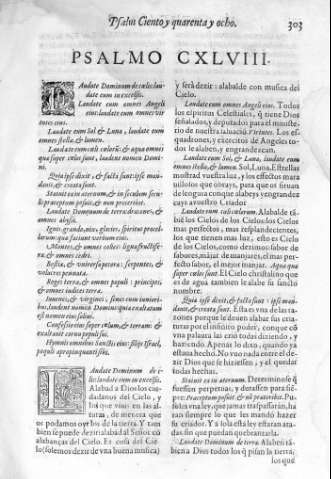 Psalm Ciento y quarenta y ocho. 303
PSALMO CXLVIII.
Laudate Dominum de cælis: laudate eum in excelsis.
Laudate eum omnes Angeli
eius: laudate eum omnes virtutes eius.
Laudate eum Sol & Luna, laudate eum
omnes stellæ, & lumen.
Laudate eum cæli cælorũ: & aquæ omnes
quæ super cælos sunt, laudent nomen Domini.
Quia ipse dixit, & facta sunt: ipse mandauit, & creata sunt.
Statuit ea in æternum, & in sæculum sæculi:
præceptum posuit, & non præteribit.
Laudate Dominum de terra: dracones, &
omnes abyssi.
Ignis, grando, nix, glacies, spiritus procellarum: quæ faciunt verbum eius.
Montes, & omnes colles: ligna fructifera, & omnes cedri.
Bestiæ, & vniuersa pecora: serpentes, &
volucres pennatæ.
Reges terræ, & omnes populi: principes,
& omnes iudices terræ.
Iuuenes, & virgines, senes cum iunioribus,
laudent nomen Domini: quia exaltatum
est nomen eius solius.
Confessio eius super cælum, & terram: &
exaltauit cornu populi sui.
Hymnus omnibus sanctis eius: filijs Israel,
populo appropinquanti sibi.
Laudate Dominum de cælis: laudate eum in excelsis.
Alabad a Dios los ciudadanos del Cielo, y
los que viuis en las alturas, de manera que
os podamos oyr los de la tierra. Y tambien se puede dezir: alabad al Señor con
alabanças del Cielo. Es cosa del Cielo
(solemos dezir de vna buena musica)
y será dezir: alabalde con musica del
Cielo.
Laudate eum omnes Angeli eius. Todos
los espiritus Celestiales, q̃ tiene Dios
señalados, y deputados para el ministerio de nuestra saluació. Virtutes. Los esquadrones, y exercitos de Angeles
todos le alaben, y engrandezcan.
Laudate eum Sol, & Luna, laudate eum
omnes stellæ, & lumen. Sol, Luna, Estrellas
mostrad vuestra luz, y los efectos marauillosos que obrays, para que os siruan
de lengua con que alabeys y engrandezcays a vuestro Criador
Laudate eum cæli cælorum. Alabalde tãbien los Cielos de los Cielos: los Cielos
mas perfectos, mas resplandecientes,
los que tienen mas luz, esto es Cielo
de los Cielos, como dezimos: labor de
labores, májar de manjares, el mas perfecto labor, el mejor manjar. Aquæ quæ
super cælos sunt. El Cielo christalino que
es de agua tambien le alabe su sancto
nombre.
Quia ipse dixit, & facta sunt: ipse mandauit, & creata sunt. Esta es vna de las razones porque le deuen alabar sus criaturas por el infinito poder, con que cõ
vna palabra las crió todas diziendo, y
haziendo. Apenas lo dixo, quando ya
estaua hecho. No vuo nada entre el dezir Dios que se hiziessen, y el quedar
todas hechas.
Statuit ea in æternum. Determinose q̃
fuessen perpetuas, y durassen para siẽpre. Præceptum posuit, & nõ præteribit. Pusoles vna ley, que jamas traspassarán, harán siempre lo que les mandó hazer
su criador. Y a sola esta ley estaran atadas, sin que puedan quebrantarla.
Laudate Dominum de terra. Alaben tãbien a Dios todos los q̃ habitan la tierra,
los que